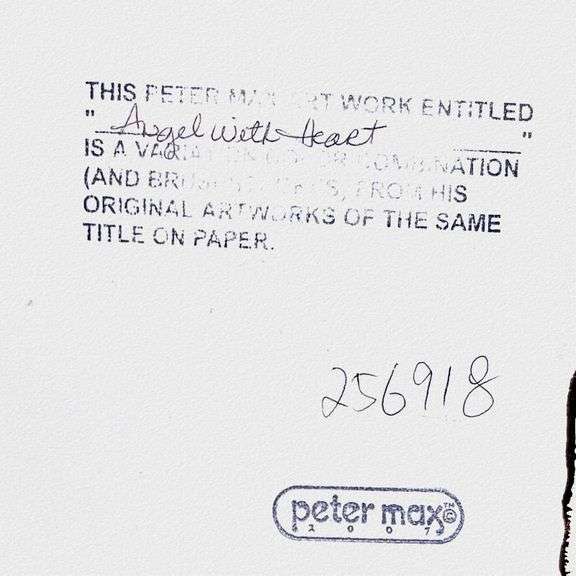 THIS PETER MAX ART WORK ENTITLED
" Angel with Heart "
IS A VARIATION COLOR COMBINATION
(AND BRUSH FROM HIS
ORIGINAL ARTWORKS OF THE SAME
TITLE ON PAPER.
256918
peter max ™©
2007